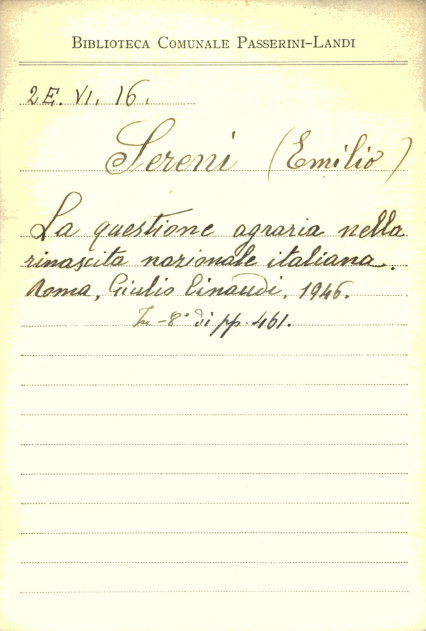 BIBLIOTECA COMUNALE PASSERINI-LANDI
2E. VI. 16.
Sereni (Emilio)
La questione agraria nella
rinascita nazionale italiana.
Roma, Giulio Einaudi, 1946.
In-8° di pp. 461.